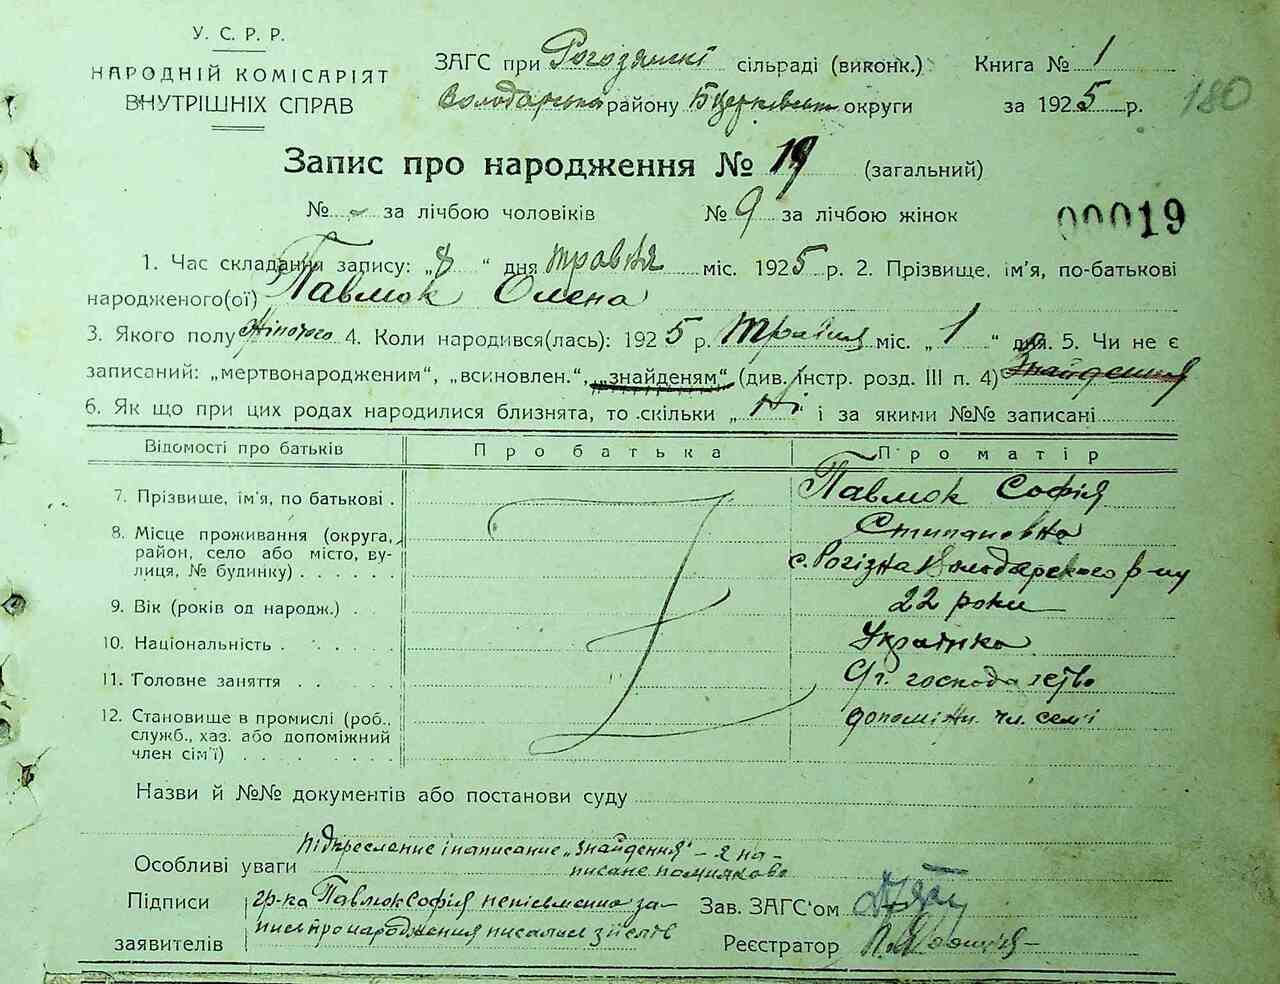 У. С. Р. Р.
НАРОДНІЙ КОМІСАРІЯТ
ВНУТРІШНІХ СПРАВ
ЗАГС при Рогозянскі сільраді (виконк.) Книга № 1
Володарська району Б церківськ округи за 1925 р. 180
Запис про народження № 19 (загальний)
№ – за лічбою чоловіків № 9 за лічбою жінок 00019
1. Час складання запису: „8 “ дня травня міс. 1925 р. 2. Прізвище, ім'я, по-батькові
народженого(ої) Павлюк Олена
3. Якого полу жіночого 4. Коли народився(лась): 1925 р. Травня міс. „ 1 “ дня. 5. Чи не є
записаний: „мертвонародженим“, „всиновлен.“, „знайденям“ (див. інстр. розд. III п. 4) Знайдення
6. Як що при цих родах народилися близнята, то скільки „ Ні і за якими №№ записані
Відомості про батьків Про батька Про матір
7. Прізвище, ім'я, по батькові . Павлюк Софія
Степановна
8. Місце проживання (округа,
район, село або місто, ву-
лиця, № будинку) . . . . . . с. Рогізна Володарского р-ну
9. Вік (років од народж.) . 22 роки
10. Національність . . . . . . Українка
11. Головне заняття . . с/г. господарство
12. Становище в промислі (роб.,
служб., хаз. або допоміжний
член сім'ї) . . . . . . . . допоміжн. чл. семї
Назви й №№ документів або постанови суду
Особливі уваги Підкреслание і написание „знайдення“ – є на-
писане помилково
Підписи гр-ка Павлюк Софія неписьменна за-
заявителів пис про народження писалась з її слів
Зав. ЗАГС'ом
Реєстратор